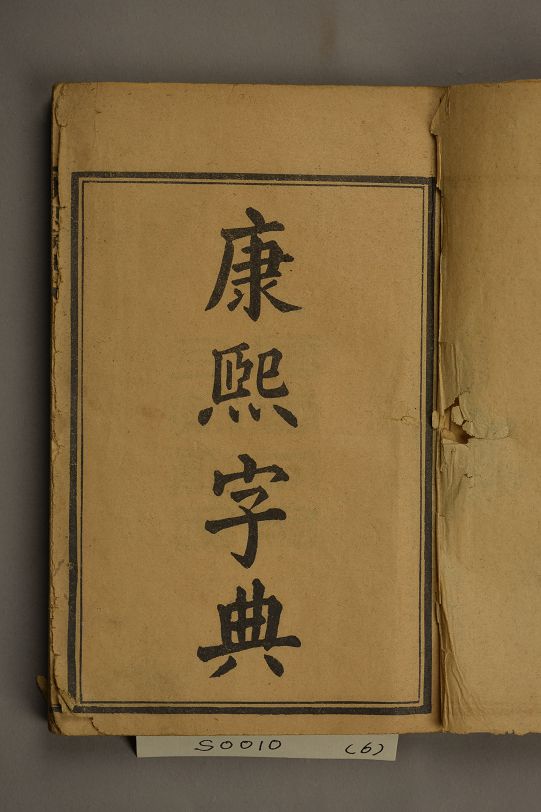 康熙字典
S0010 (6)